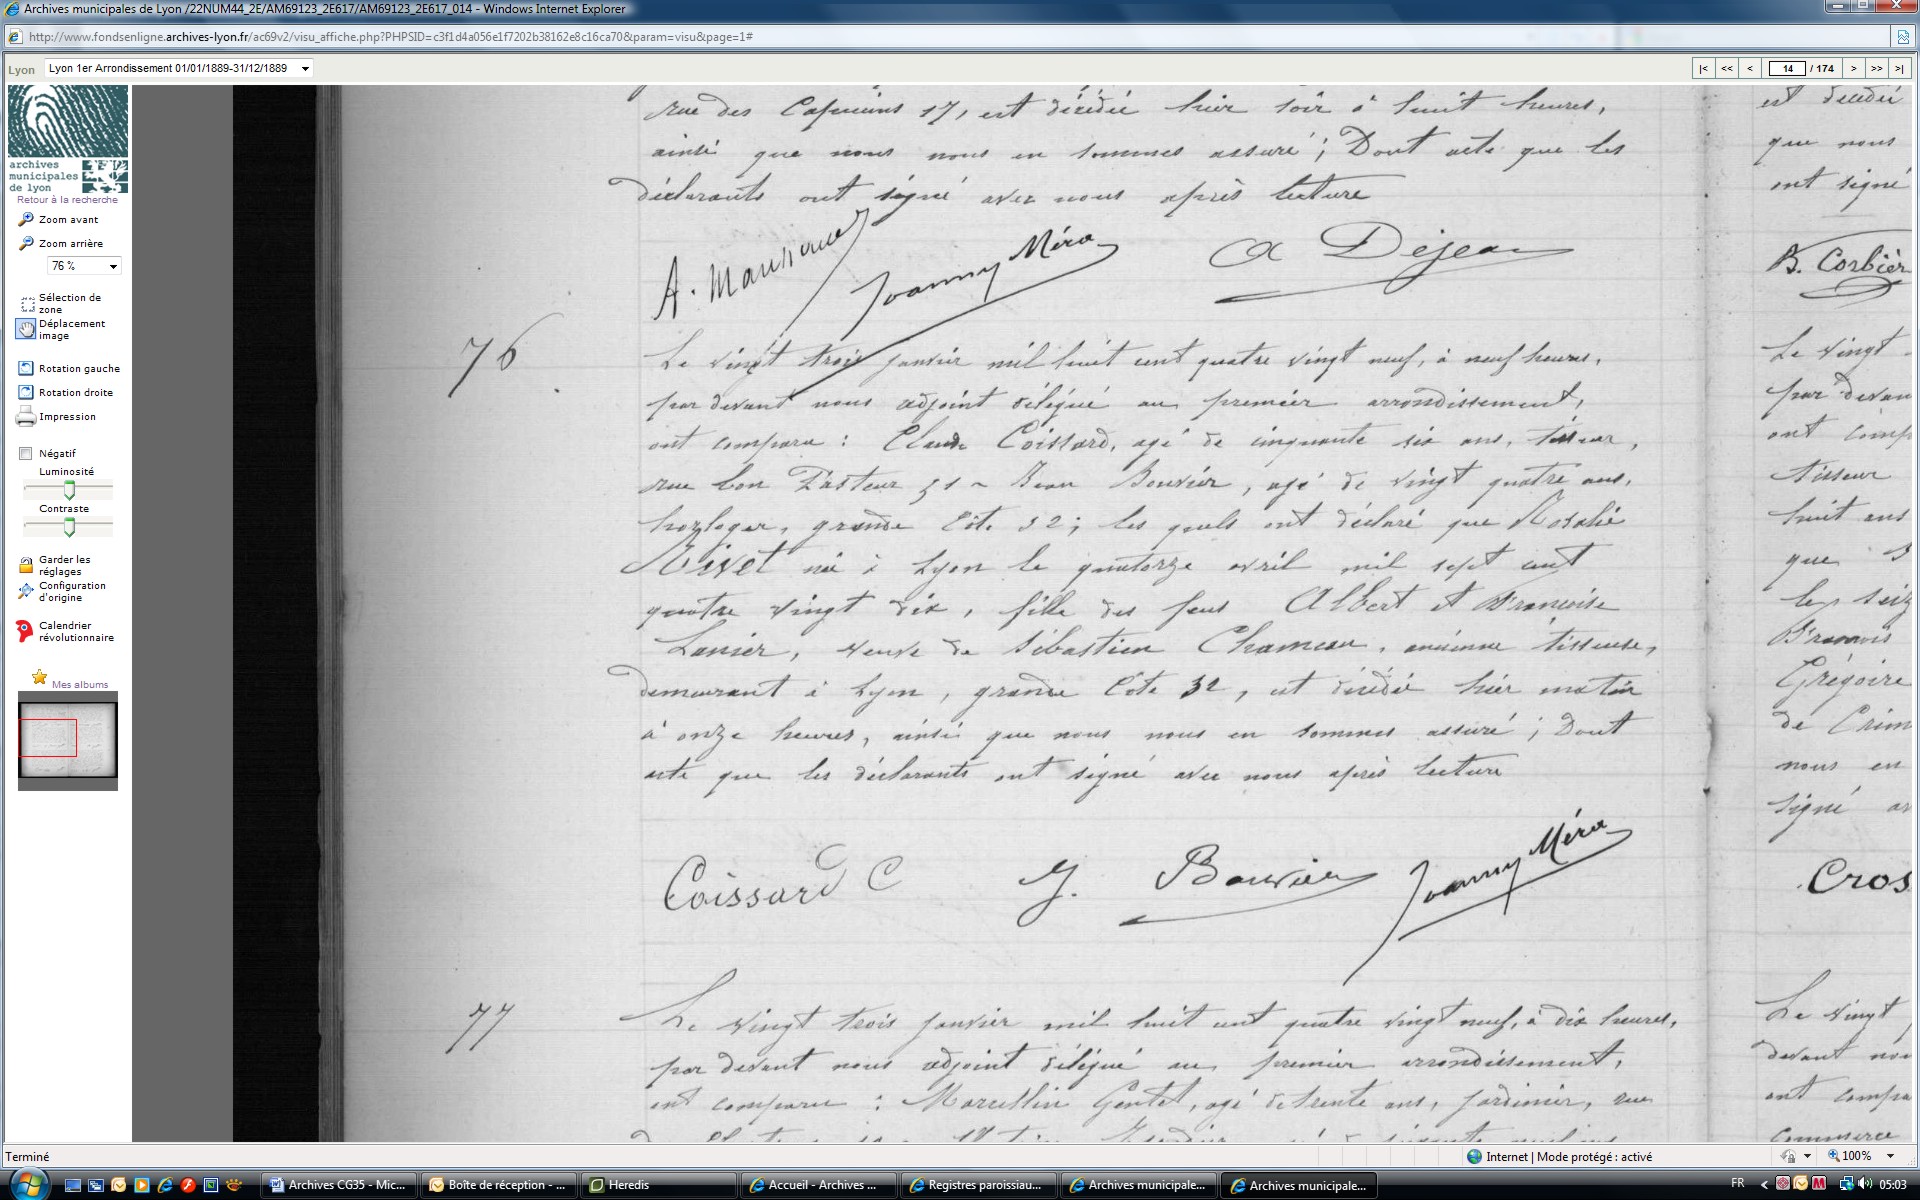 Archives municipales de Lyon /22NUM44_2E/AM69123_2E617/AM69123_2E617_014 - Windows Internet Explorer
http://www.fondsenligne.archives-lyon.fr/ac69v2/visu_affiche.php?PHPSID=c3f1d4a056e1f7202b38162e8c16ca70&param=visu&page=1#
Lyon Lyon 1er Arrondissement 01/01/1889-31/12/1889
|< << < 14 / 174 > >> >|
archives
municipales
de Lyon
Retour à la recherche
Zoom avant
Zoom arrière
76 %
Sélection de
zone
Déplacement
image
Rotation gauche
Rotation droite
Impression
Négatif
Luminosité
Contraste
Garder les
réglages
Configuration
d'origine
Calendrier
révolutionnaire
Mes albums
rue des Capucins 17, est décédée hier soir à huit heures,
ainsi que nous nous en sommes assuré ; Dont acte que les
déclarants ont signé avec nous après lecture
Joanny Méra
A Dejean
76
Le vingt trois janvier mil huit cent quatre vingt neuf, à neuf heures,
par devant nous adjoint délégué au premier arrondissement,
ont comparu : Claude Coissard, agé de cinquante six ans, tisseur,
rue bon Pasteur 51 ~ Jean Bouvier, agé de vingt quatre ans,
horloger, grande Côte 32 ; les quels ont déclaré que Rosalie
Rivet née à Lyon le quatorze avril mil sept cent
quatre vingt dix, fille des feus Albert et Françoise
Lanier, veuve de Sébastien Chameau, ancienne tisseuse,
demeurant à Lyon, grande Côte 32, est décédée hier matin
à onze heures, ainsi que nous nous en sommes assuré ; Dont
acte que les déclarants ont signé avec nous après lecture
Coissard C J. Bouvier Joanny Méra
77
Le vingt trois janvier mil huit cent quatre vingt neuf, à dix heures,
par devant nous adjoint délégué au premier arrondissement,
ont comparu : Marcellin Gentet, agé de trente ans, jardinier, rue
est décédé
que nous
ont signé
B. Corbier
Le vingt
par devan
ont comp
tisseur
huit ans
que
le seiz
François
Grégoire
de Crim
nous en
signé av
Cros
Le vingt
devant no
ont compa
commerce
Terminé
Internet | Mode protégé : activé
100%
Archives CG35 - Mic...
Boîte de réception - ...
Heredis
Accueil - Archives ...
Registres paroissiau...
Archives municipale...
Archives municipale...
FR
05:03